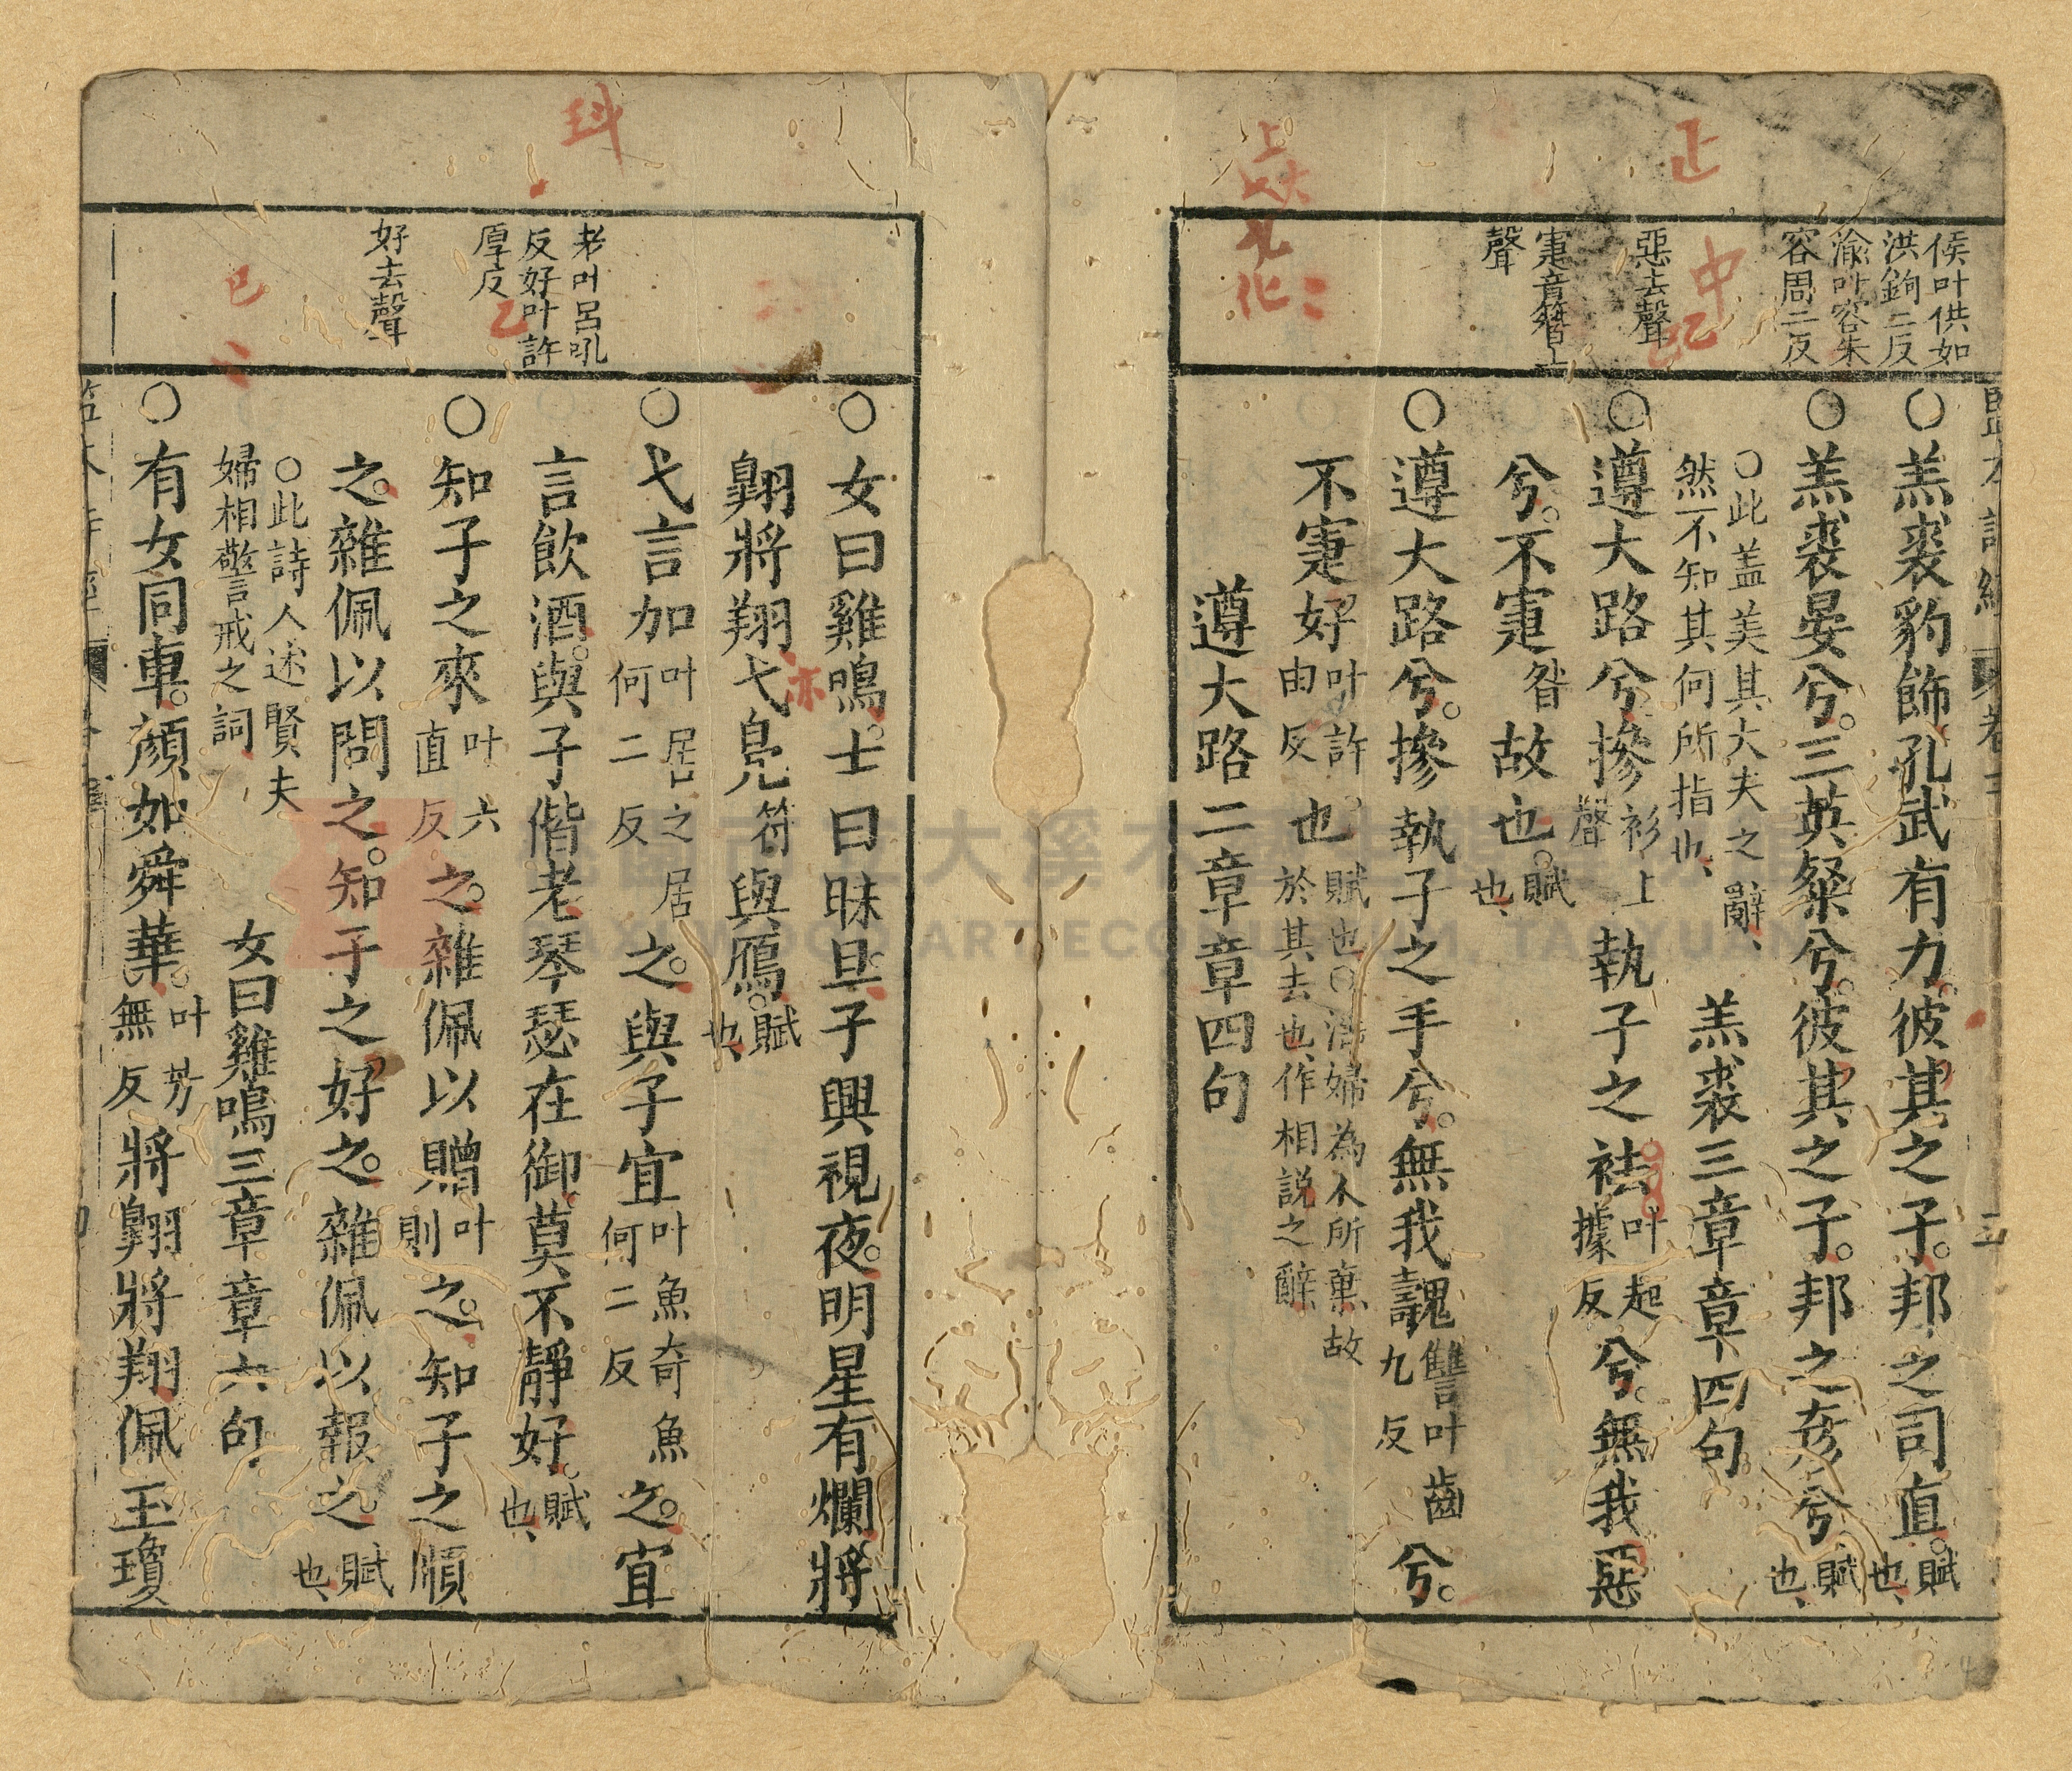 侯叶供如
洪鉤二反
渝叶容朱
容周二反
惡去聲
寁音簪上
聲
○羔裘豹飾孔武有力彼其之子邦之司直賦也
○羔裘晏兮三英粲兮彼其之子邦之彥兮賦也
○此蓋美其大夫之辭
然不知其何所指也
羔裘三章章四句
○遵大路兮摻衫上聲執子之袪叶起據反兮無我惡
兮不寁昝故也賦也
○遵大路兮摻執子之手兮無我魗讐叶齒九反兮
不寁好叶許由反也賦也○淫婦為人所棄故
於其去也作相說之辭
遵大路二章章四句
老叶呂吼
反好叶許
厚反
好去聲
○女曰雞鳴士曰昧旦子興視夜明星有爛將
翱將翔弋鳧符與鴈賦也
○弋言加叶居之居何二反之與子宜叶魚奇魚何二反之宜
言飲酒與子偕老琴瑟在御莫不靜好賦也
○知子之來叶六直反之雜佩以贈叶則之知子之順
之雜佩以問之知子之好之雜佩以報之賦也
○此詩人述賢夫
婦相警戒之詞
女曰雞鳴三章章六句
○有女同車顏如舜華叶芳無反將翱將翔佩玉瓊
正
中
科
亦
桃園市立大溪木藝生態博物館
DAXI WOOD ART ECOMUSEUM, TAOYUAN